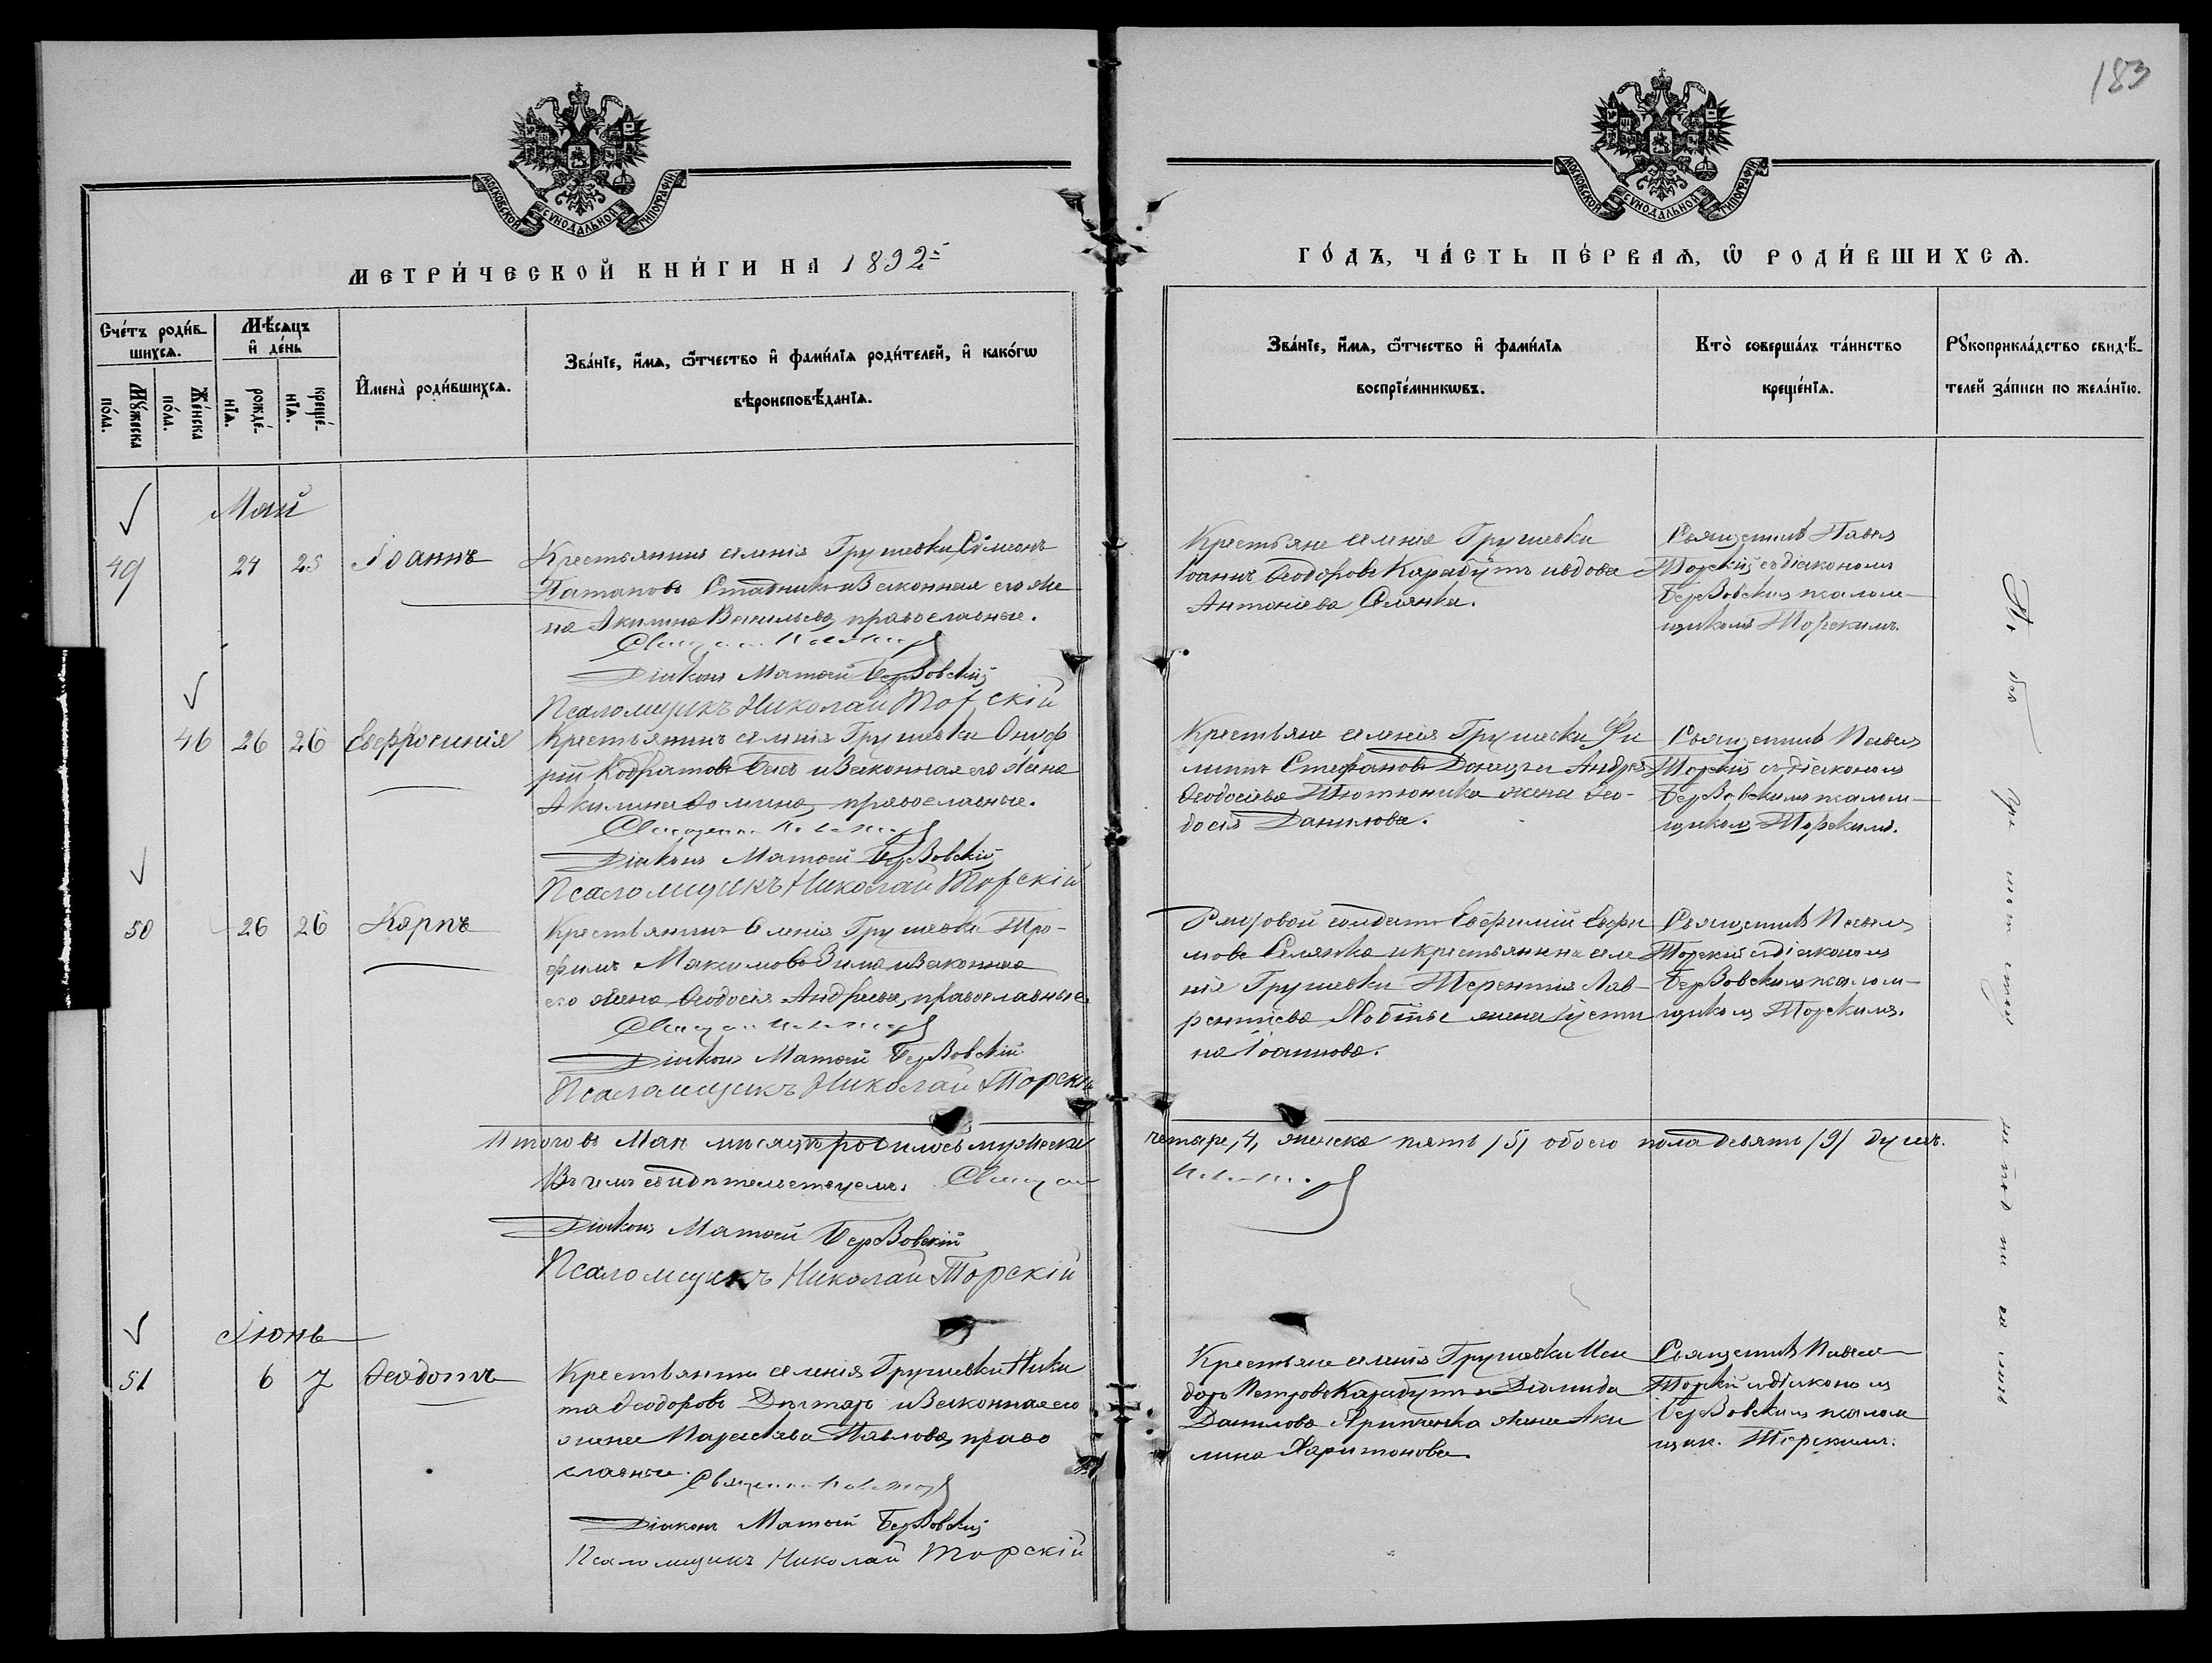 183
МОСКОВСКОЙ СѴНОДАЛЬНОЙ ТИПОГРАФІИ
МОСКОВСКОЙ СѴНОДАЛЬНОЙ ТИПОГРАФІИ
МЕТРИ́ЧЕСКОЙ КНИ́ГИ НА 1892й
ГО́ДЪ, ЧА́СТЬ ПЕ́РВАѦ, Ѿ РОДИ́ВШИХСѦ.
Сче́тъ роди́вшихсѧ.
Мꙋ́жеска по́ла.
Же́нска по́ла.
Мѣ́сѧцъ и҆ де́нь
рожде́нїѧ.
креще́нїѧ.
И҆мена̀ роди́вшихсѧ.
Зва́нїе, и҆́мѧ, ѻ҆́тчество и҆ фами́лїѧ роди́телей, и҆ како́гѡ
вѣроисповѣ́данїѧ.
Зва́нїе, и҆́мѧ, ѻ҆́тчество и҆ фами́лїѧ
воспрїе́мникѡвъ.
Кто̀ соверша́лъ та́инство
креще́нїѧ.
Рꙋкоприкла́дство свидѣ́-
телей за́писи по жела́нїю.
Май
49 24 25 Іоаннъ
Крестьянинъ селенія Грушевки, Сѵмеонъ
Патаповъ Стадникъ и законная его же
на Акилина Васильева, православные.
Діаконъ Матѳей Бервовскій
Псаломщикъ Николай Торскій
Крестьяне селенія Грушевки
Іоаннъ Ѳеодоровъ Карабутъ и вдова
Антоніева Селянка.
Священникъ Павелъ
Торскій съ діакономъ
Бервовскимъ и псалом-
щикомъ Торскимъ.
46 26 26 Евфросинія
Крестьянинъ селенія Грушевки Онуф
рій Кодратовъ Бысъ и законная его жена
Акилина Ѳомина, православные.
Діаконъ Матѳей Бервовскій
Псаломщикъ Николай Торскій
Крестьяне селенія Грушевки Фи
липпъ Стефановъ Донецъ и Андрея
Ѳеодосіева Тютюника жена Ѳео-
досія Данилова.
Священникъ Павелъ
Торскій съ діакономъ
Бервовскимъ и псалом-
щикомъ Торскимъ.
50 26 26 Карпъ
Крестьянинъ селенія Грушевки Тро-
фимъ Максимовъ Зима и законная
его жена Ѳеодосія Андреева, православные.
Діаконъ Матѳей Бервовскій
Псаломщикъ Николай Торскій
Рядовой солдатъ Евфимій Евфи
мовъ Селянка и крестьянина селе
нія Грушевки Терентія Лав-
рентіева жена Іусти
на Іоаннова.
Священникъ Павелъ
Торскій съ діакономъ
Бервовскимъ и псалом-
щикомъ Торскимъ.
Итого въ Маѣ мѣсяцѣ родилось мужеска четыре /4/, женска пять /5/ обоего пола девять /9/ душъ.
Въ чемъ свидѣтельствуемъ.
Діаконъ Матѳей Бервовскій
Псаломщикъ Николай Торскій
Іюнь
51 6 7 Ѳеодотъ
Крестьянинъ селенія Грушевки Ники
та Ѳеодоровъ Дегтяръ и законная его
жена Параскева Павлова, право
славные.
Діаконъ Матѳей Бервовскій
Псаломщикъ Николай Торскій
Крестьяне селенія Грушевки Иси
доръ Петровъ Карабутъ и Діомида
Данилова Ярипченка жена Аки
лина Харитонова.
Священникъ Павелъ
Торскій съ діакономъ
Бервовскимъ и псалом
щик. Торскимъ.